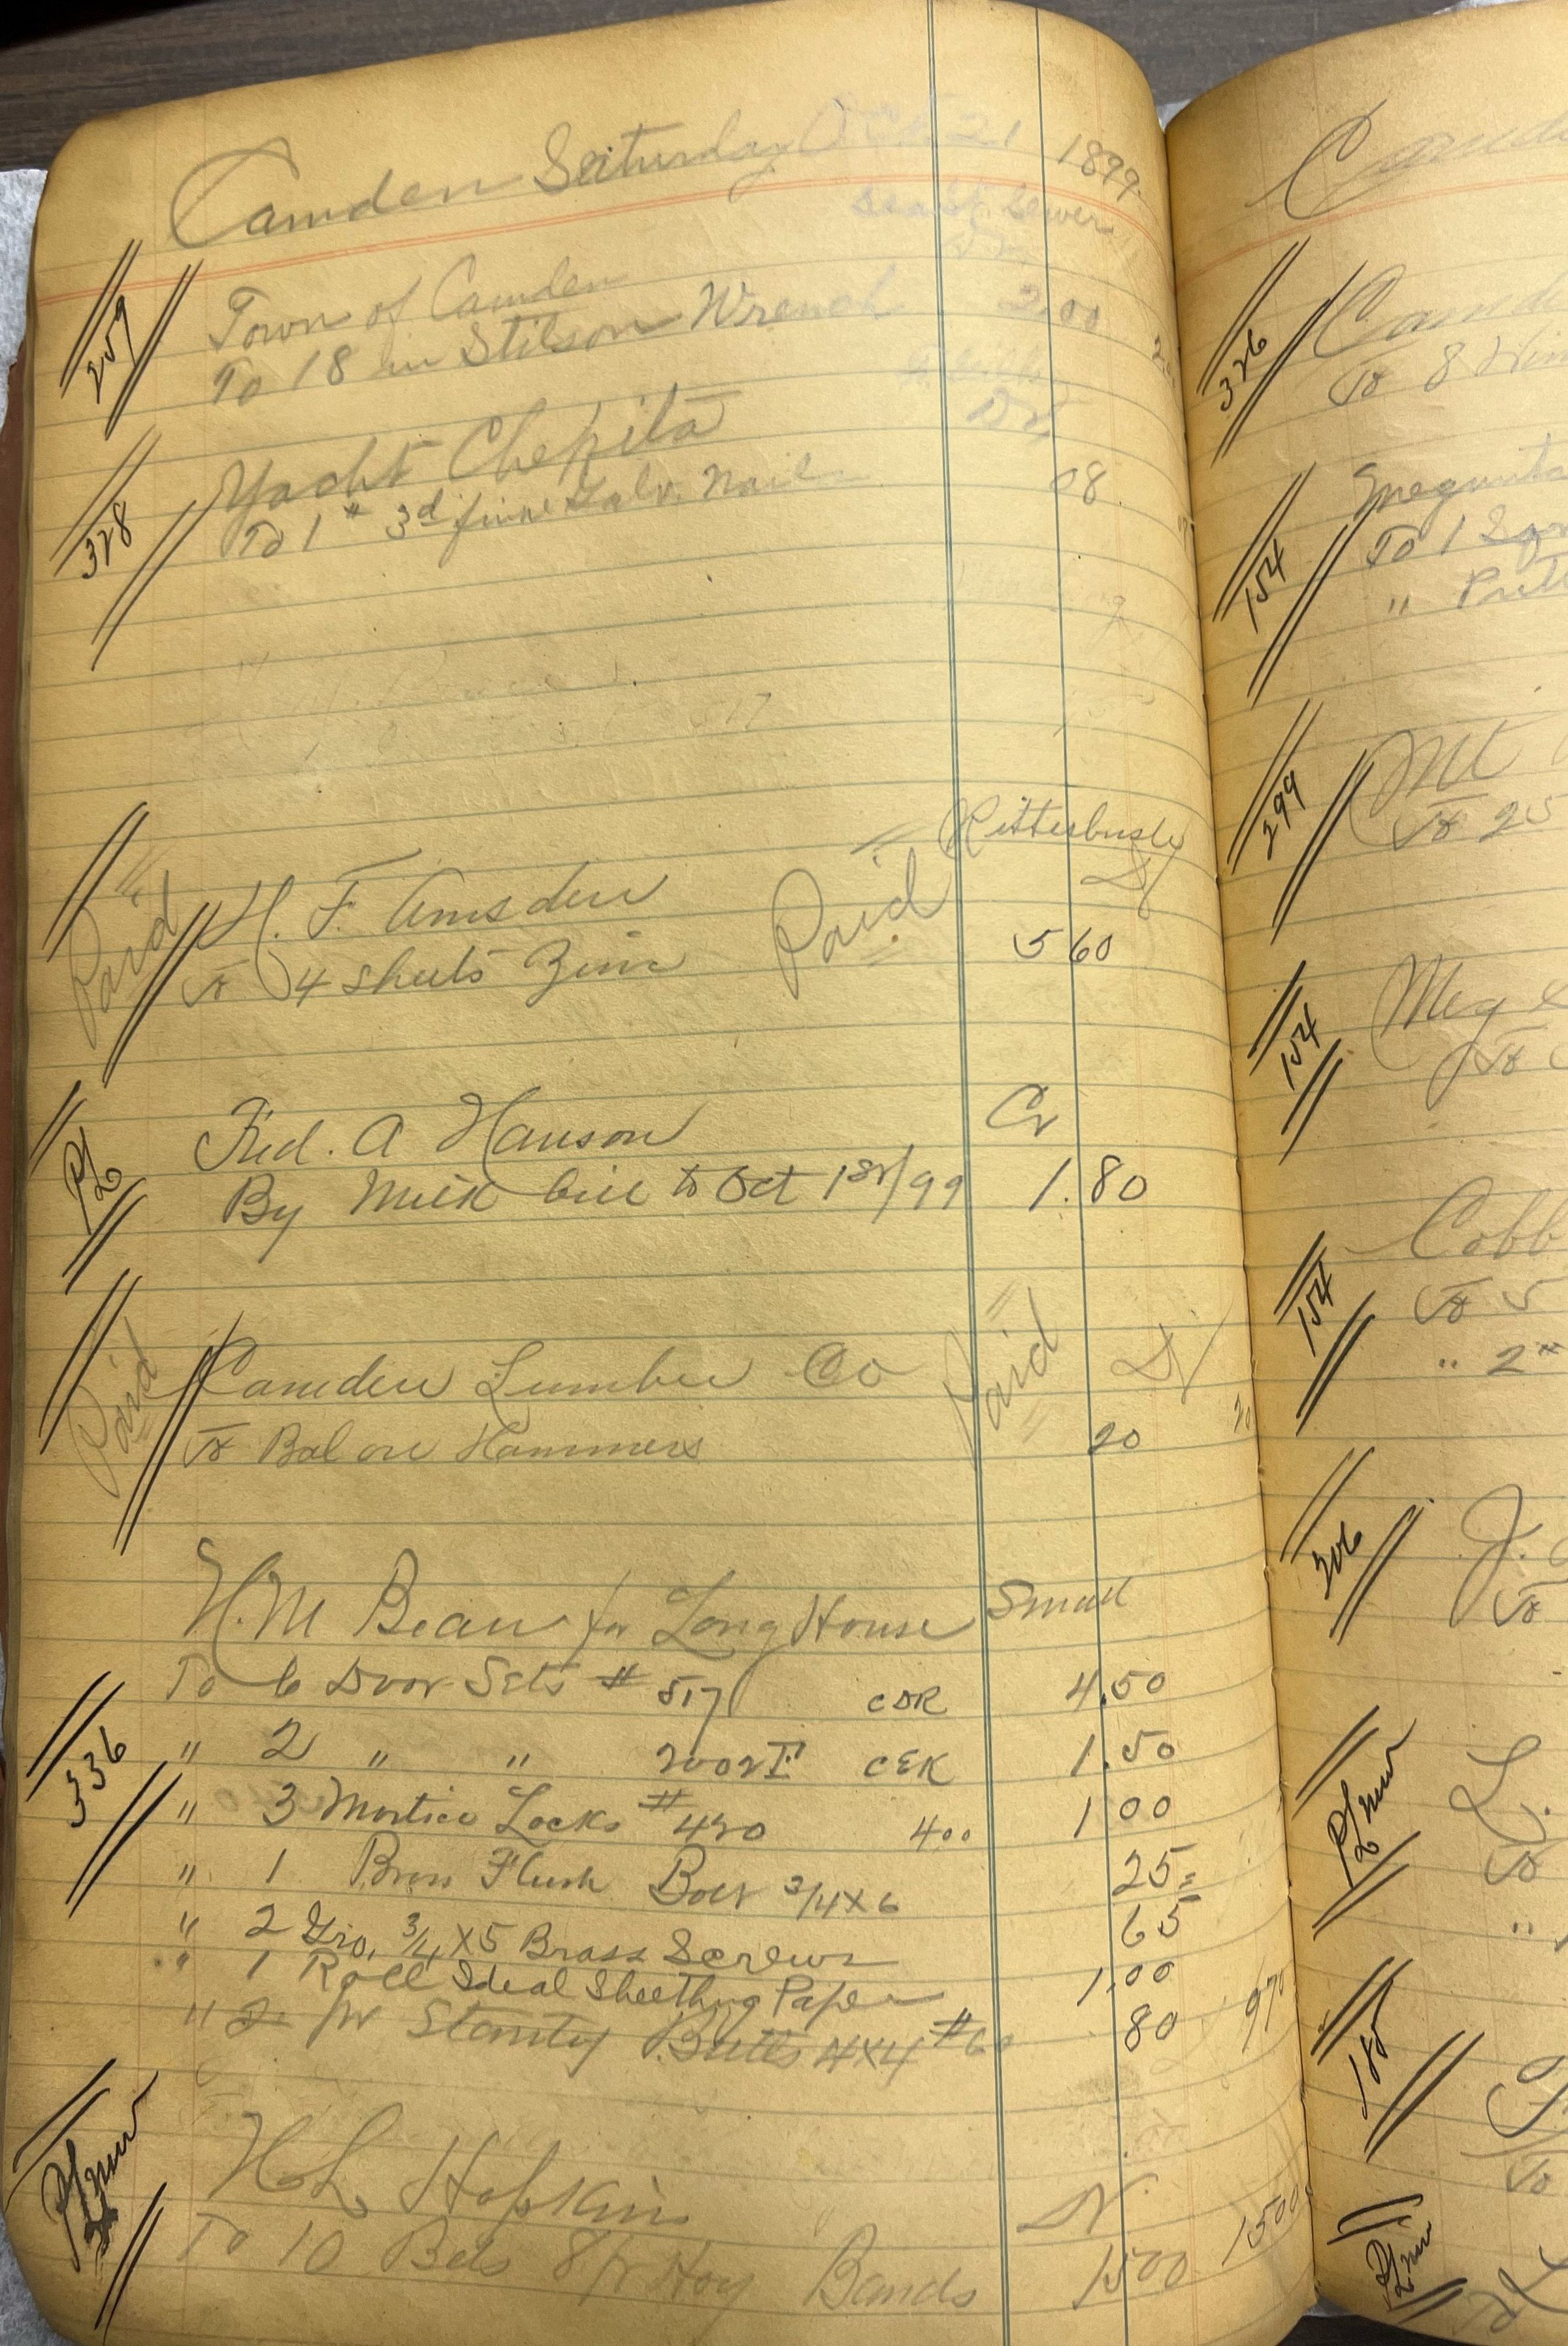 Camden Saturday Oct 21 1899
Sewer
Dr
259
Town of Camden
To 18 in Stilson Wrench 2.00
Dr
328
Yacht Chepita
To 1 # 3d fine Galv. Nail 08
Ritterbush
Paid
H. F. Amsden Paid Dr
To 4 sheets Zinc 5 60
Fred. A Hanson Cr
By Milk bill to Oct 1st/99 1.80
Paid
Camden Lumber Co Paid Dr
To Bal on Hammers 20
H.M Bean for Long House Small
To 6 Door Sets # 517 CDR 4.50
336
" 2 " " 2002 CEK 1.50
" 3 Mortice Locks # 420 400 1 00
" 1 Brass Flush Bolt 3/4 x 6 25
" 2 Gro. 3/4 x 5 Brass Screws 65
" 1 Roll Ideal Sheething Paper 1.00
" 2 pr Stanley Butts 4x4 #60 80 9 70
H L Hopkins Dr
To 10 Bels 8 ft Hoy Bands 15 00 1500
326
To 8
154
To 1
"
299
Mt
To 25
154
Meg
To
154
Cobb
To 5
" 2 #
306
J.
To
L.
To
"
185
To